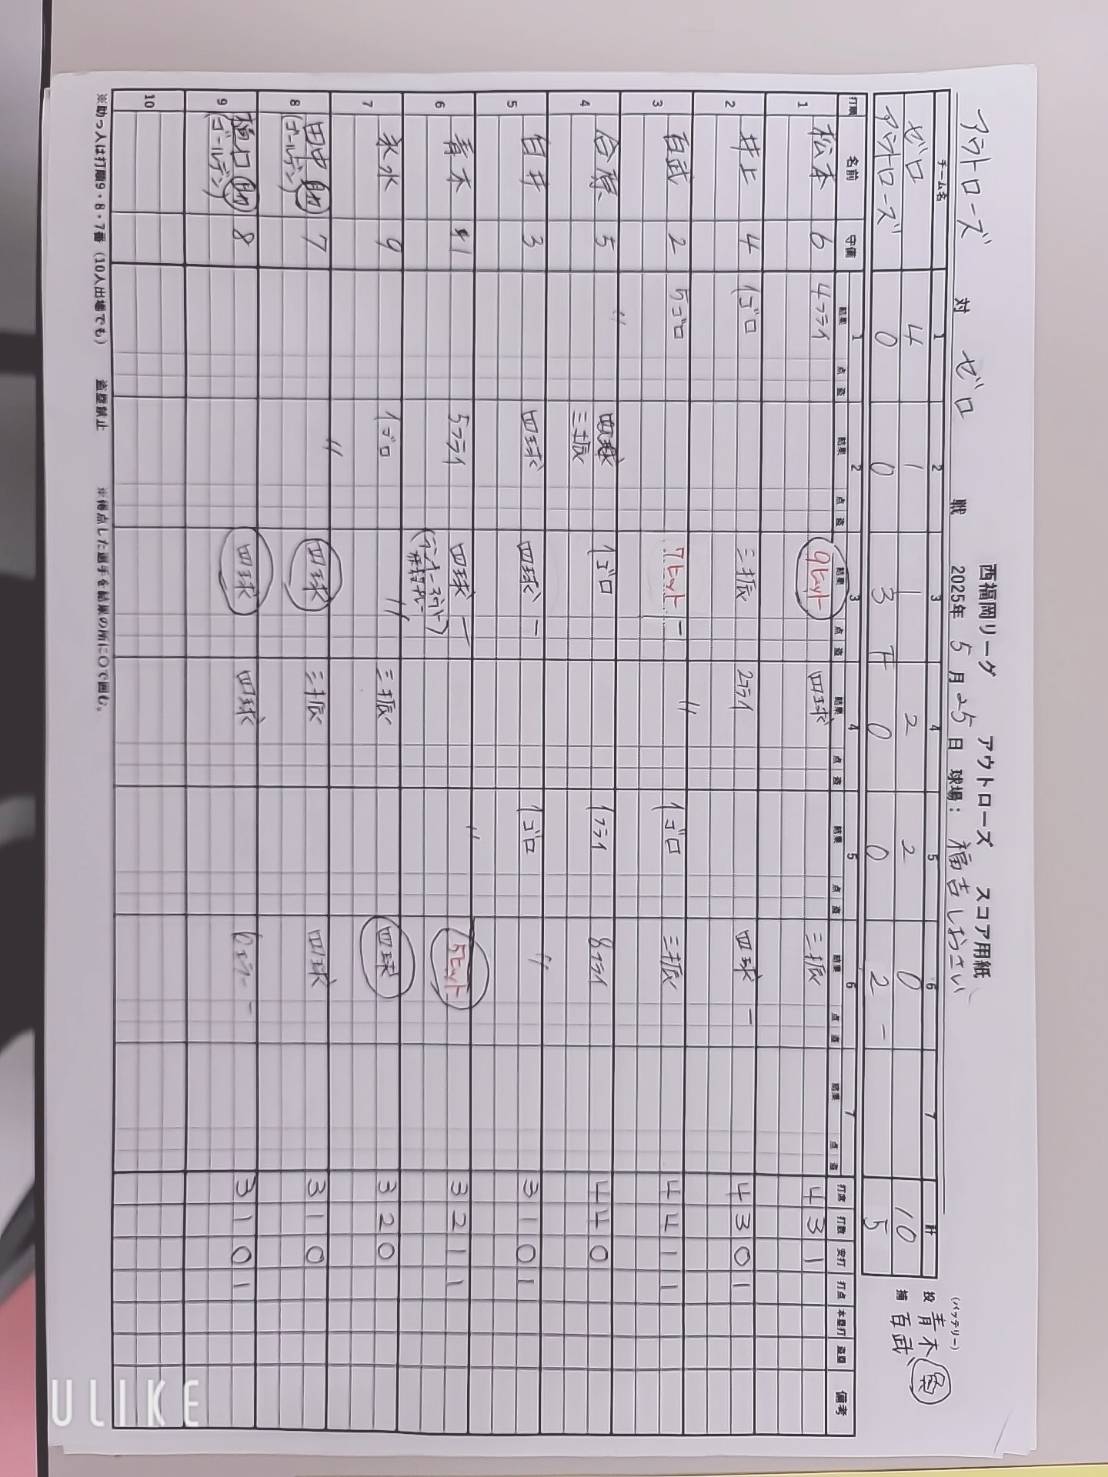 西福岡リーグ アウトローズ スコア用紙
アウトローズ 対 ゼロ 戦 2025年 5月25日 球場： 福吉しおさい
チーム名 1 2 3 4 5 6 7 計
ゼロ 4 1 1 2 2 0 10
アウトローズ 0 0 3 0 0 2 5
(バッテリー)
投 青木
捕 百武
打順 名前 守備 結果 点 盗 結果 点 盗 結果 点 盗 結果 点 盗 結果 点 盗 結果 点 盗 結果 点 盗 打席 打数 安打 打点 本塁打 盗塁 備考
1 松本 6 4フライ 9ヒット 四球 三振 4 3 1
2 井上 4 1ゴロ 三振 2フライ 四球 - 4 3 0 1
3 百武 2 5ゴロ 7ヒット - 〃 1ゴロ 三振 4 4 1 1
4 合原 5 〃 三振 1ゴロ 1フライ 8フライ 4 4 0
5 白井 3 四球 四球 - 1ゴロ 〃 3 1 0 1
6 青木 1 5フライ 四球 - 〃 5ヒット 3 2 1 1
7 末永 9 1ゴロ 〃 三振 四球 3 2 0
8 田中 助 7 〃 四球 三振 四球 3 1 0
(ゴールデン)
9 樋口 助 8 四球 四球 6エラー - 3 1 0 1
(ゴールデン)
10
※助っ人は打順9・8・7番（10人出場でも） 盗塁禁止 ※得点した選手を結果の所に〇で囲む。
ULIKE